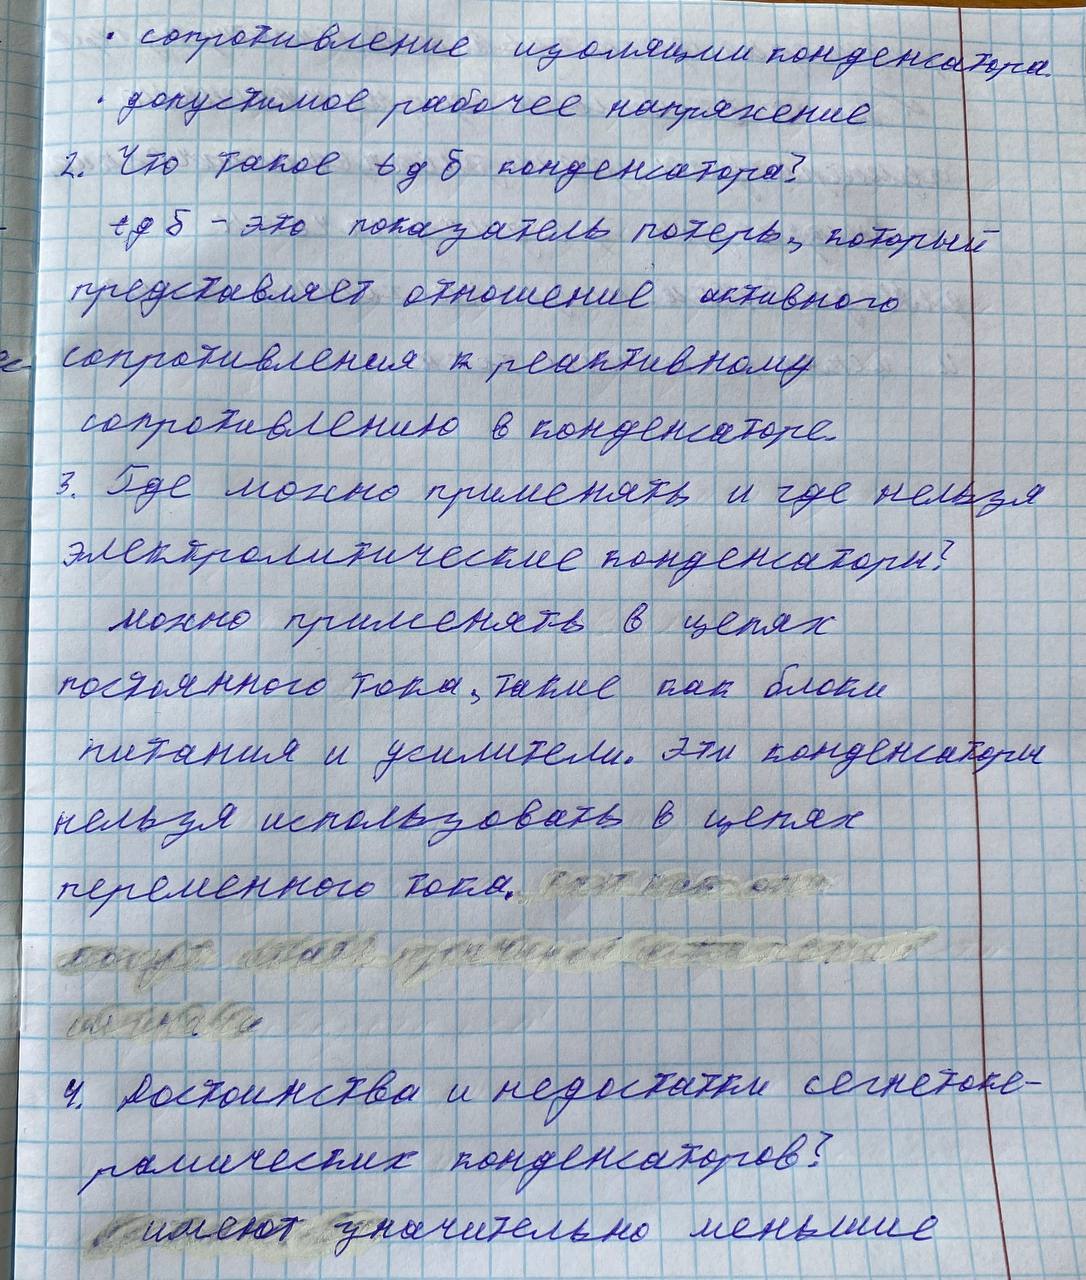 · сопротивление изоляции конденсатора.
· допустимое рабочее напряжение
2. Что такое tgδ конденсатора?
tgδ - это показатель потерь, который
представляет отношение активного
сопротивления к реактивному
сопротивлению в конденсаторе.
3. Где можно применять и где нельзя
электролитические конденсаторы?
можно применять в цепях
постоянного тока, такие как блоки
питания и усилители. Эти конденсаторы
нельзя использовать в цепях
переменного тока.
4. Достоинства и недостатки сегнетоке-
рамических конденсаторов?
имеют значительно меньшие